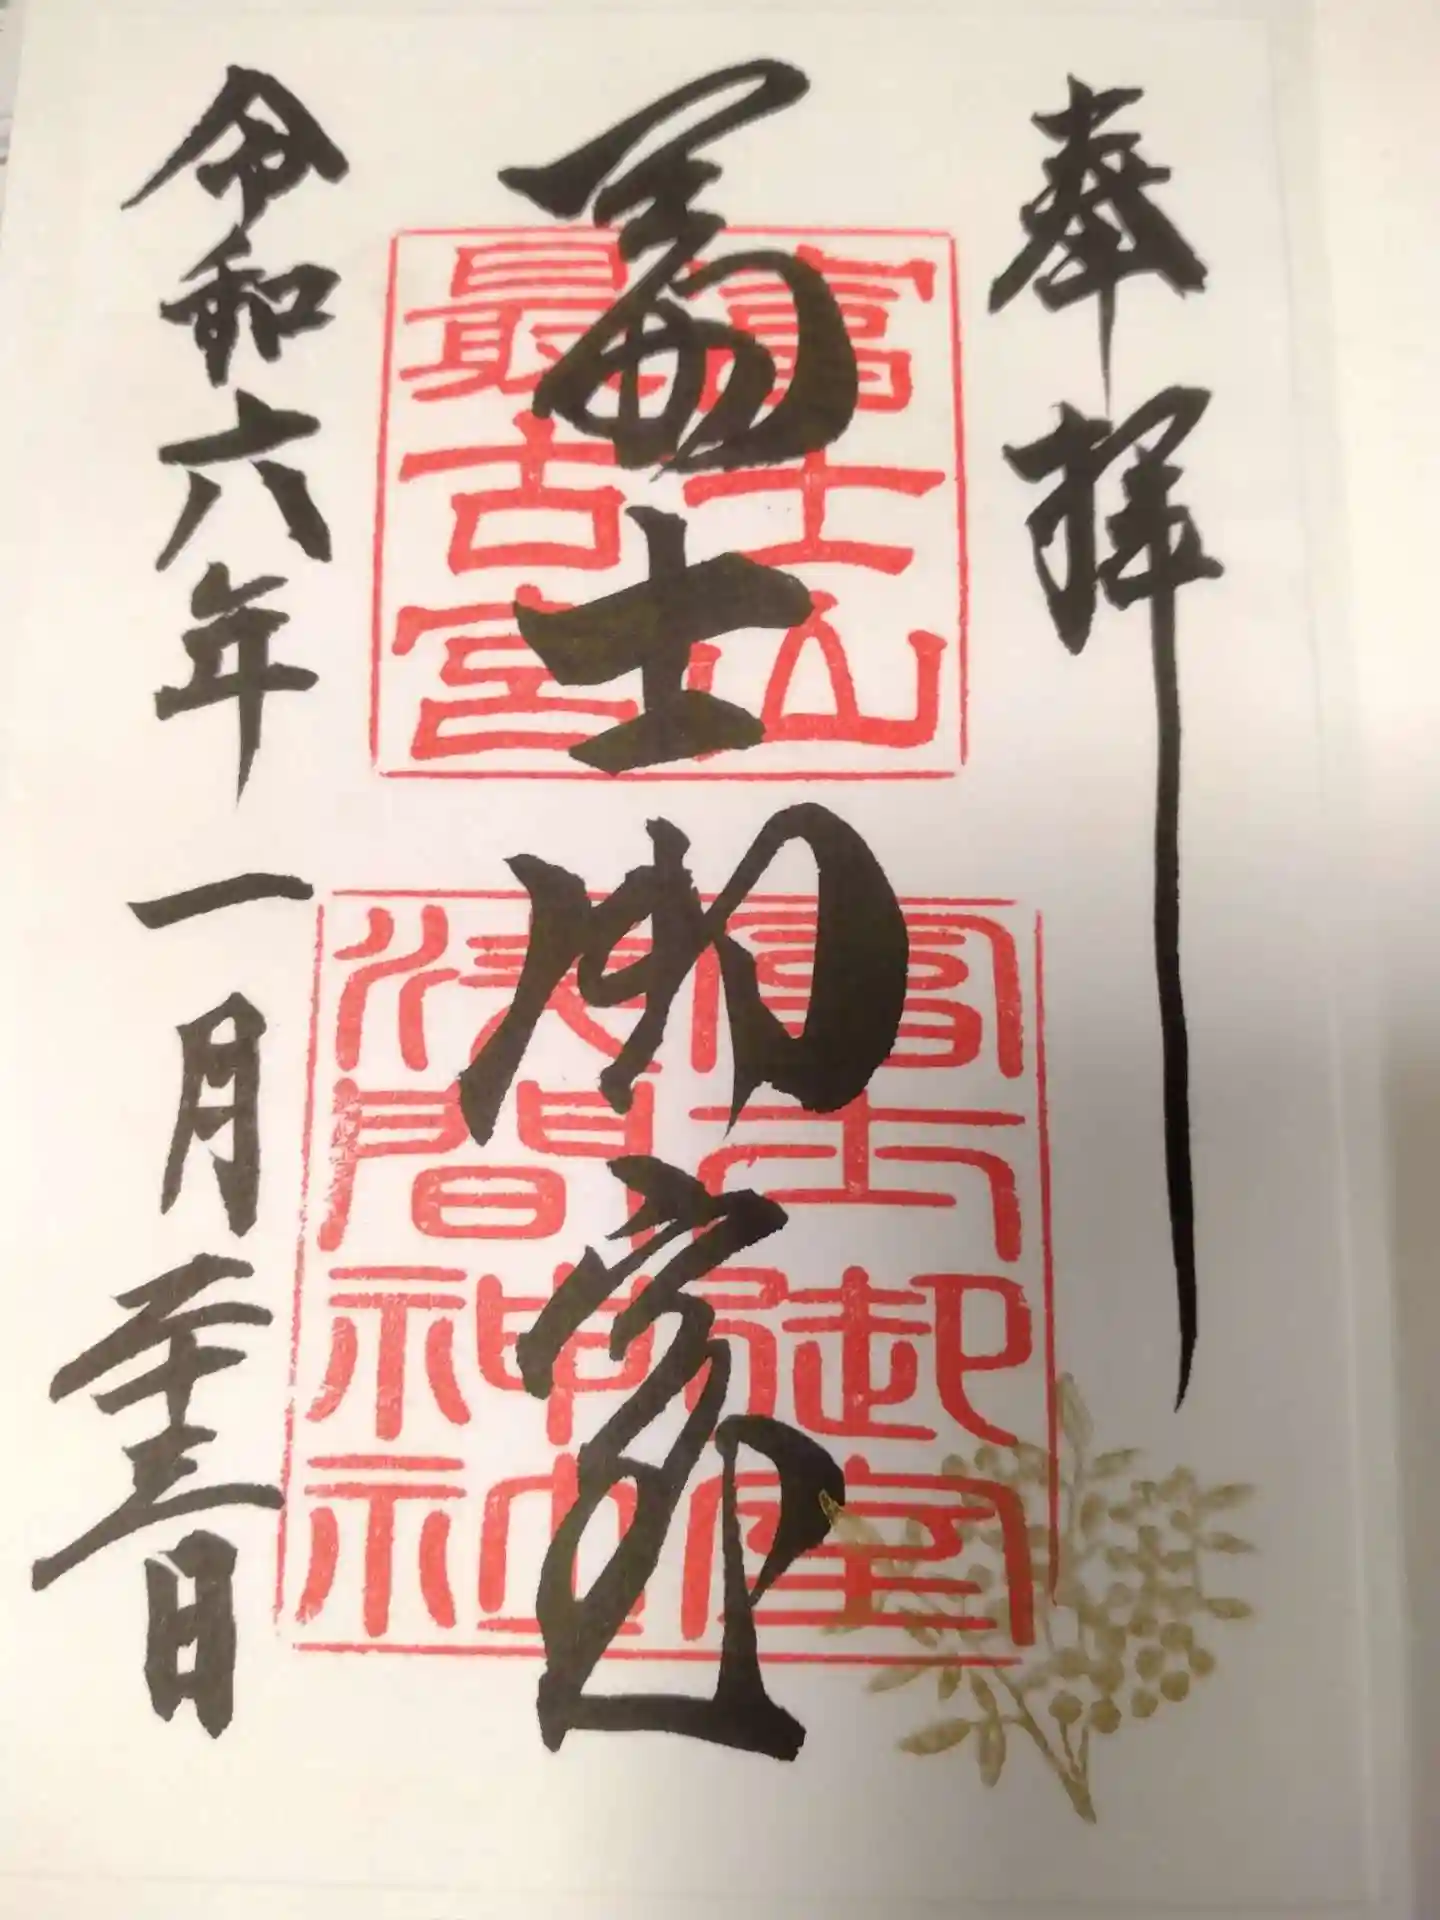 奉拝
冨士御室
令和六年一月二十三日
富士山
最古宮
冨士御室
浅間神社